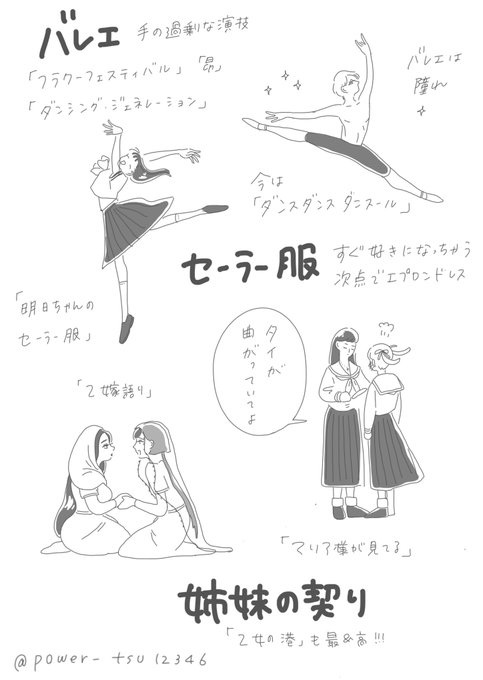 バレエ
手の過剰な演技
「フラワーフェスティバル」「昴」
「ダンシング・ジェネレーション」
バレエは
憧れ
今は
「ダンスダンスダンスール」
セーラー服
すぐ好きになっちゃう
次点でエプロンドレス
「明日ちゃんの
セーラー服」
タイが
曲がっていてよ
「乙嫁語り」
「マリア様が見てる」
姉妹の契り
「乙女の港」も最&高!!!
@power_tsu12346